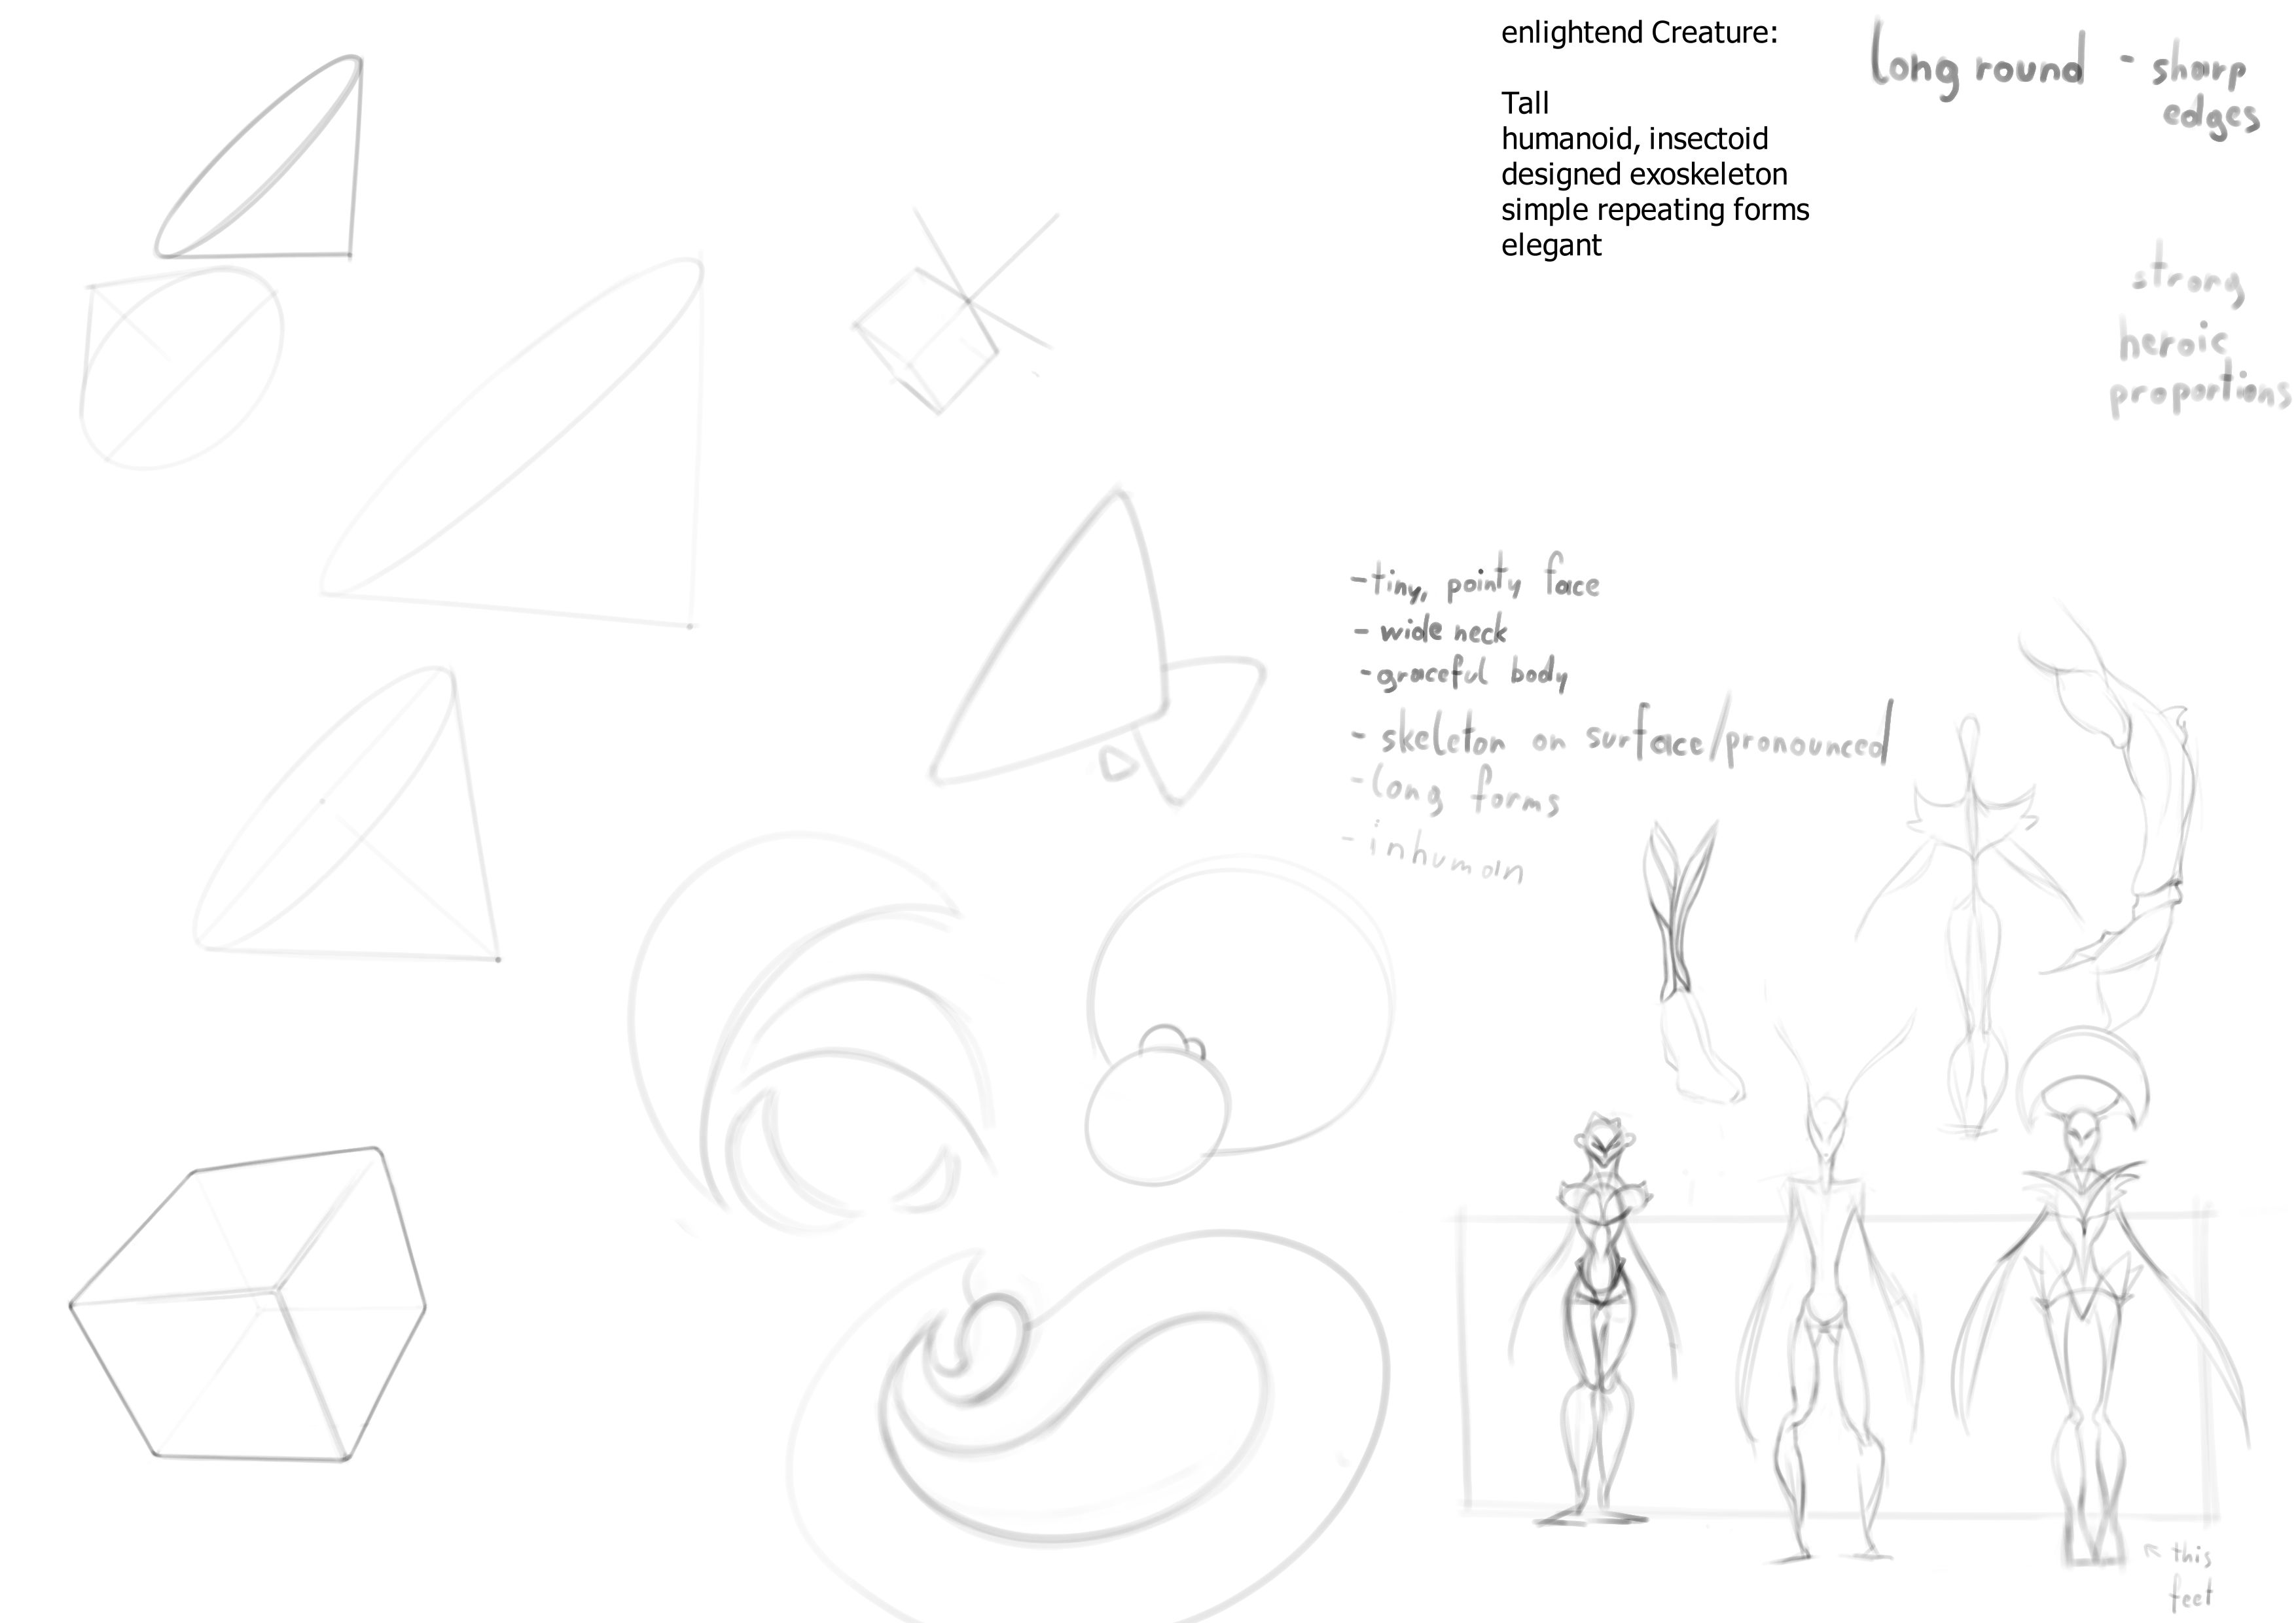 enlightend Creature:
Tall
humanoid, insectoid
designed exoskeleton
simple repeating forms
elegant
long round - sharp
edges
strong
heroic
proportions
-tiny, pointy face
- wide neck
-graceful body
- skeleton on surface/pronounced
-long forms
-inhuman
this
feet